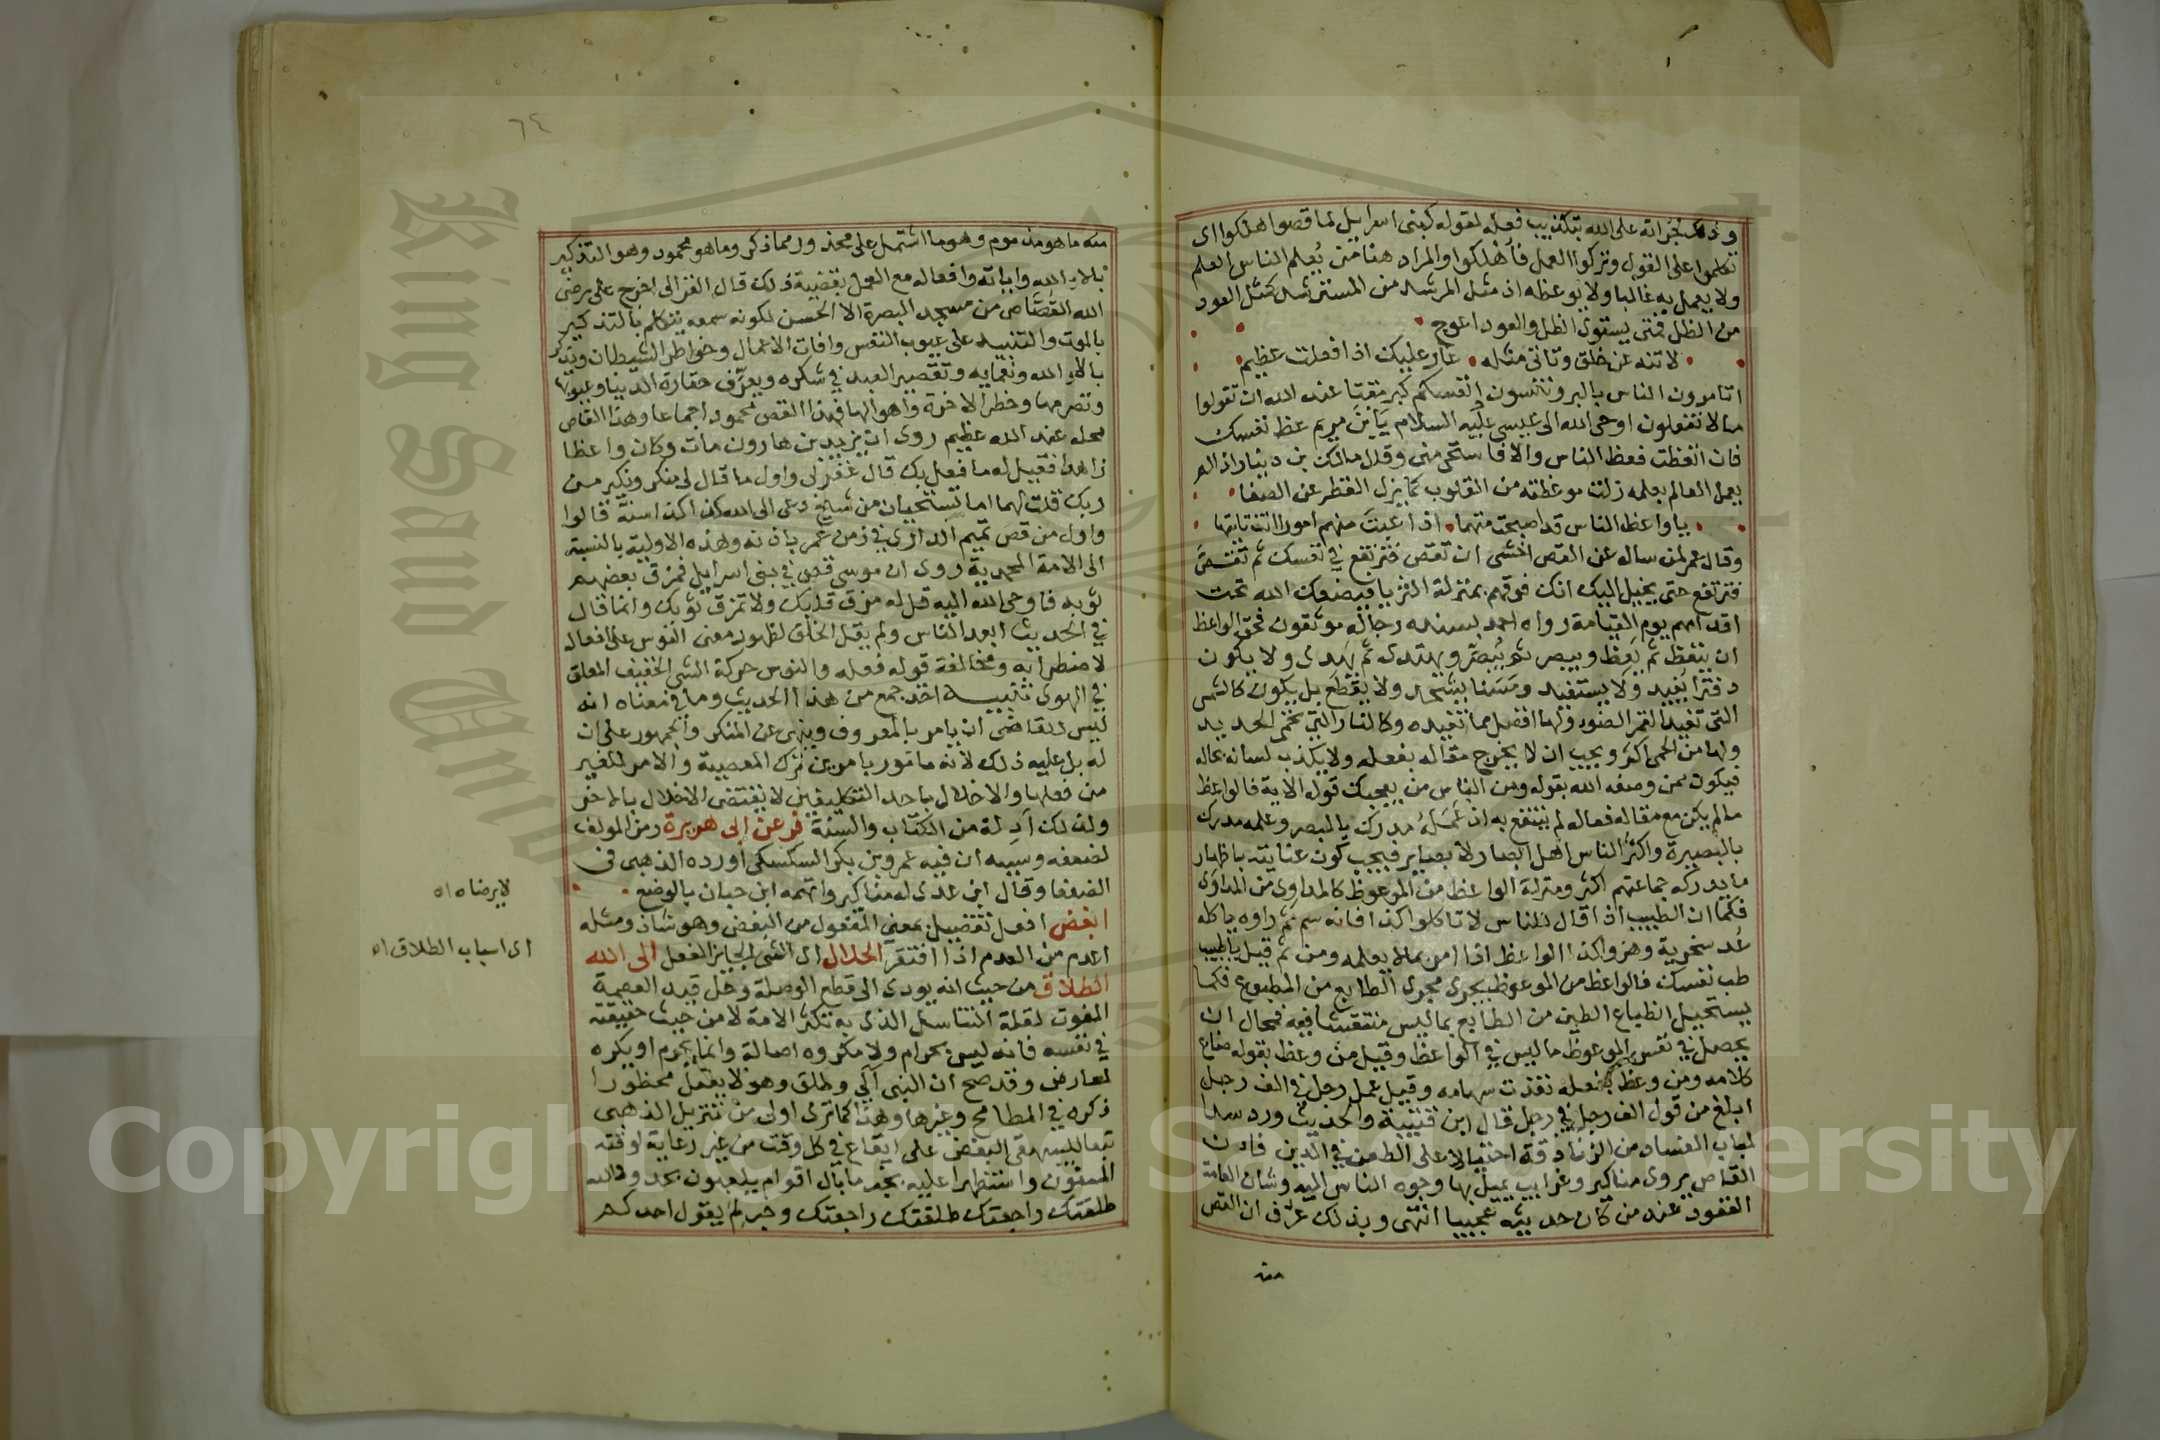 وذلك لجرأته على الله بتكذيب فعله لقوله كبنى اسرايل لما قصوا هلكوا اى
تكلموا على القول وتركوا العمل فأهلكوا والمراد هنا من يُعلم الناس العلم
ولا يعمل به غالبا ولا يوعظه اذ مثل المرشد من المسترشد كمثل العود
من الظل فمتى يستوى الظل والعود اعوج
لا تنه عن خلق وتاتى مثله عار عليك اذا فعلت عظيم
اتامرون الناس بالبر وتنسون انفسكم كبر مقتا عند الله ان تقولوا
ما لا تفعلون اوحى الله الى عيسى عليه السلام يا بن مريم عظ نفسك
فان اتعظت فعظ الناس والا فاستحى منى وقال مالك بن دينار اذا لم
يعمل العالم بعلمه زلت موعظته من القلوب كما يزل القطر عن الصفا
يا واعظ الناس قد اصبحت متهما اذا عبت منهم امورا انت تاتيها
وقال عمر لمن ساله عن القص اخشى ان تقص فترتفع في نفسك ثم تقص
فترتفع حتى يخيل اليك انك فوقهم بمنزلة الثريا فيضعك الله تحت
اقدامهم يوم القيامة رواه احمد بسند رجاله موثقون فحق الواعظ
ان يتعظ ثم يعظ ويبصر ثم يُبصّر ويهتدى ثم يهدى ولا يكون
دفترا يُفيد ولا يستفيد ومسنا يشحذ ولا يقطع بل يكون كالشمس
التى تفيد القمر الضوء ولها افضل مما تفيده وكالنار التى تحمى الحديد
ولها من الحمى اكثر ويجب ان لا يجرح مقاله بفعله ولا يكذب لسانه بحاله
فيكون ممن وصفه الله بقوله ومن الناس من يعجبك قوله الاية فالواعظ
مالم يكن مع مقاله فعاله لم ينتفع به اذ عَمَلهُ مدرك بالبصر وعلمه مدرك
بالبصيرة واكثر الناس اهل ابصار لا بصاير فيجب كون عنايته باظهار
ما يدركه جماعتهم اكثر ومنزلة الواعظ من الموعوظ كالمداوِى من المداوَى
فكما ان الطبيب اذا قال للناس لا تاكلوا كذا فانه سم ثم راوه ياكله
عُد سخرية وهزوا كذا الواعظ اذا امر بما لا يعمله ومن ثم قيل يا طبيب
طب نفسك فالواعظ من الموعوظ يجرى مجرى الطابع من المطبوع فكما
يستحيل انطباع الطين من الطابع بما ليس منتقشا فيه فمحال ان
يحصل في نفس الموعوظ ما ليس في الواعظ وقيل من وعظ بقوله ضاع
كلامه ومن وعظ بفعله نفذت سهامه وقيل عمل رجل في الف رجل
ابلغ من قول الف رجل في رجل قال ابن قتيبة والحديث ورد سدا
لباب الفساد من الزنادقة احتيالا على الطعن في الدين فان
القاص يروى مناكير وغرايب يميل بها وجوه الناس اليه وشان العامة
القعود عند من كان حديثه عجيبا انتهى وبذلك عرف ان القص
منه
٦٤
منه ما هو مذموم وهو ما اشتمل على محذور مما ذكر وما هو محمود وهو التذكير
بالاء الله واياته وافعاله مع العمل بقضية ذلك قال الغزالى اخرج على رضى
الله القُصّاص من مسجد البصرة الا الحسن لكونه سمعه يتكلم بالتذكير
بالموت والتنبيه على عيوب النفس وافات الاعمال وخواطر الشيطان ويذكر
بالاء الله ونعمايه وتقصير العبد في شكره ويعرّف حقارة الدنيا وعيوبها
وتصرمها وخطر الاخرة واهوالها فهذا القص محمود اجماعا وهذا القاص
محله عند الله عظيم روى ان يزيد بن هارون مات وكان واعظا
زاهدا فقيل له ما فعل بك قال غفر لى واول ما قال لى منكر ونكير من
ربك قلت لهما اما تستحييان من شيخ دعى الى الله كذا كذا سنة قالوا
واول من قص تميم الدارى في زمن عمر باذنه وهذه الاولية بالنسبة
الى الامة المحمدية روى ان موسى قص في بنى اسرايل فمزق بعضهم
ثوبه فاوحى الله اليه قل له مزق قلبك ولا تمزق ثوبك وانما قال
في الحديث ابعد الناس ولم يقل الخلق لظهور معنى النوس على افعاله
لاضطرابه ومخالفة قوله فعله والنوس حركة الشى الخفيف المعلق
في الهوى تنبيه اخذ جمع من هذا الحديث وما في معناه انه
ليس للقاضى ان يامر بالمعروف وينهى عن المنكر والجمهور على ان
له بل عليه ذلك لانه مامور بامرين ترك المعصية والامر للغير
من فعلها والاخلال باحد التكليفين لا يقتضى الاخلال بالاخر
ولذلك ادلة من الكتاب والسنة فر عن ابى هريرة رمز المولف
لضعفه وسببه ان فيه عمرو بن بكر السكسكى اورده الذهبى فى
الضعفا وقال ابن عدى له مناكير واتهمه ابن حبان بالوضع
ابغض افعل تفضيل بمعنى المفعول من البغض وهو شاذ ومثله
اعدم من العدم اذا افتقر الحلال اى الشى الجايز الفعل الى الله
الطلاق من حيث انه يودى الى قطع الوصلة وحل قيد العصمة
المفوت لقلة التناسل الذى به تكثر الامة لا من حيث حقيقته
في نفسه فانه ليس بحرام ولا مكروه اصالة وانما يحرم او يكره
لعارض وقد صح ان النبى آلى وطلق وهو لا يفعل محظورا
ذكره في المطامح وغيرها وهذا كما ترى اولى من تنزيل الذهبى
تبعا للبيهقى البغض على ايقاع في كل وقت من غير رعاية لوقته
المسنون واستظهرا عليه بخبر ما بال اقوام يلعبون بحدود الله
طلقتك راجعتك طلقتك راجعتك وخبر لم يقول احدكم
لا يرضاه اه
اى اسباب الطلاق اه
King Saud University
Copyright © King Saud University